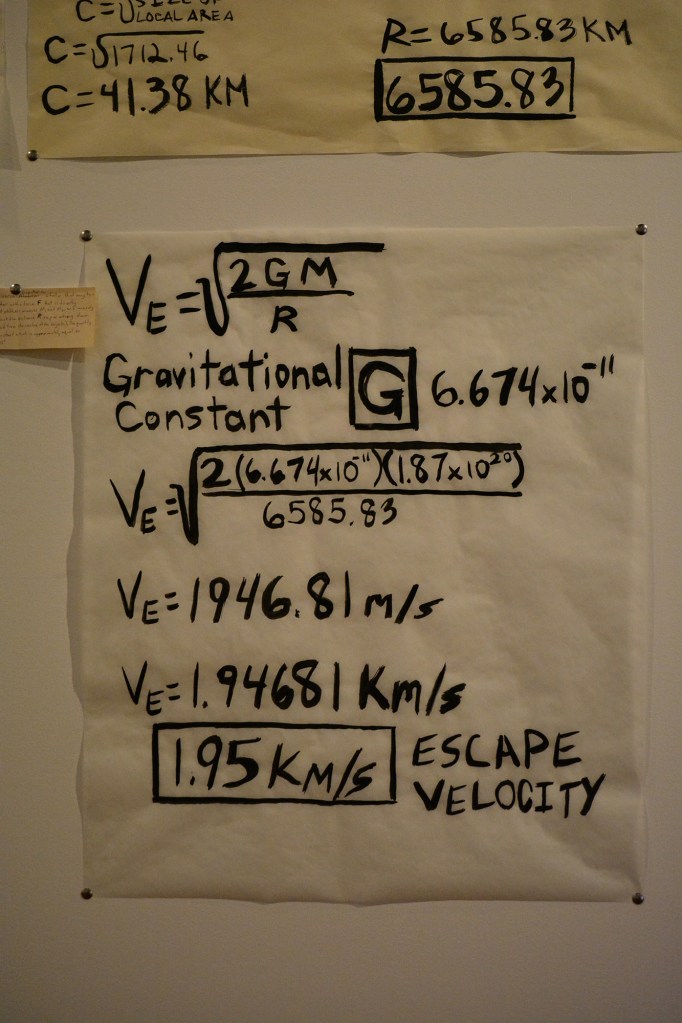 C=√SIZE OF
LOCAL AREA
C=√1712.46
C=41.38 KM
R=6585.83 KM
6585.83
VE=√2GM
R
Gravitational
Constant
G 6.674x10⁻¹¹
VE=√2(6.674x10⁻¹¹)(1.87x10²⁰)
6585.83
VE=1946.81 m/s
VE=1.94681 Km/s
1.95 KM/S
ESCAPE
VELOCITY